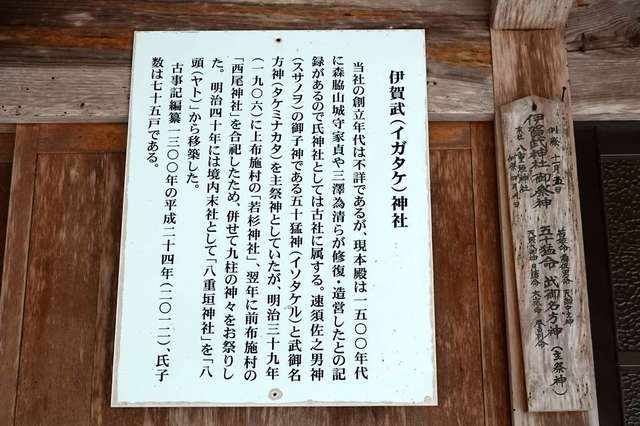 伊賀武（イガタケ）神社
当社の創立年代は不詳であるが、現本殿は一五〇〇年代
に森脇山城守家貞や三澤為清らが修復・造営したとの記
録があるので氏神社としては古社に属する。速須佐之男神
（スサノヲ）の御子神である五十猛神（イソタケル）と武御名
方神（タケミナカタ）を主祭神としていたが、明治三十九年
（一九〇六）に上布施村の「若杉神社」、翌年に前布施村の
「西尾神社」を合祀したため、併せて九柱の神々をお祭りし
た。明治四十年には境内末社として「八重垣神社」を「八
頭（ヤト）」から移築した。
古事記編纂一三〇〇年の平成二十四年（二〇一二）、氏子
数は七十五戸である。
例祭 十一月五日
伊賀武神社 御祭神
五十猛命 武御名方神（主祭神）
末社 八重垣神社